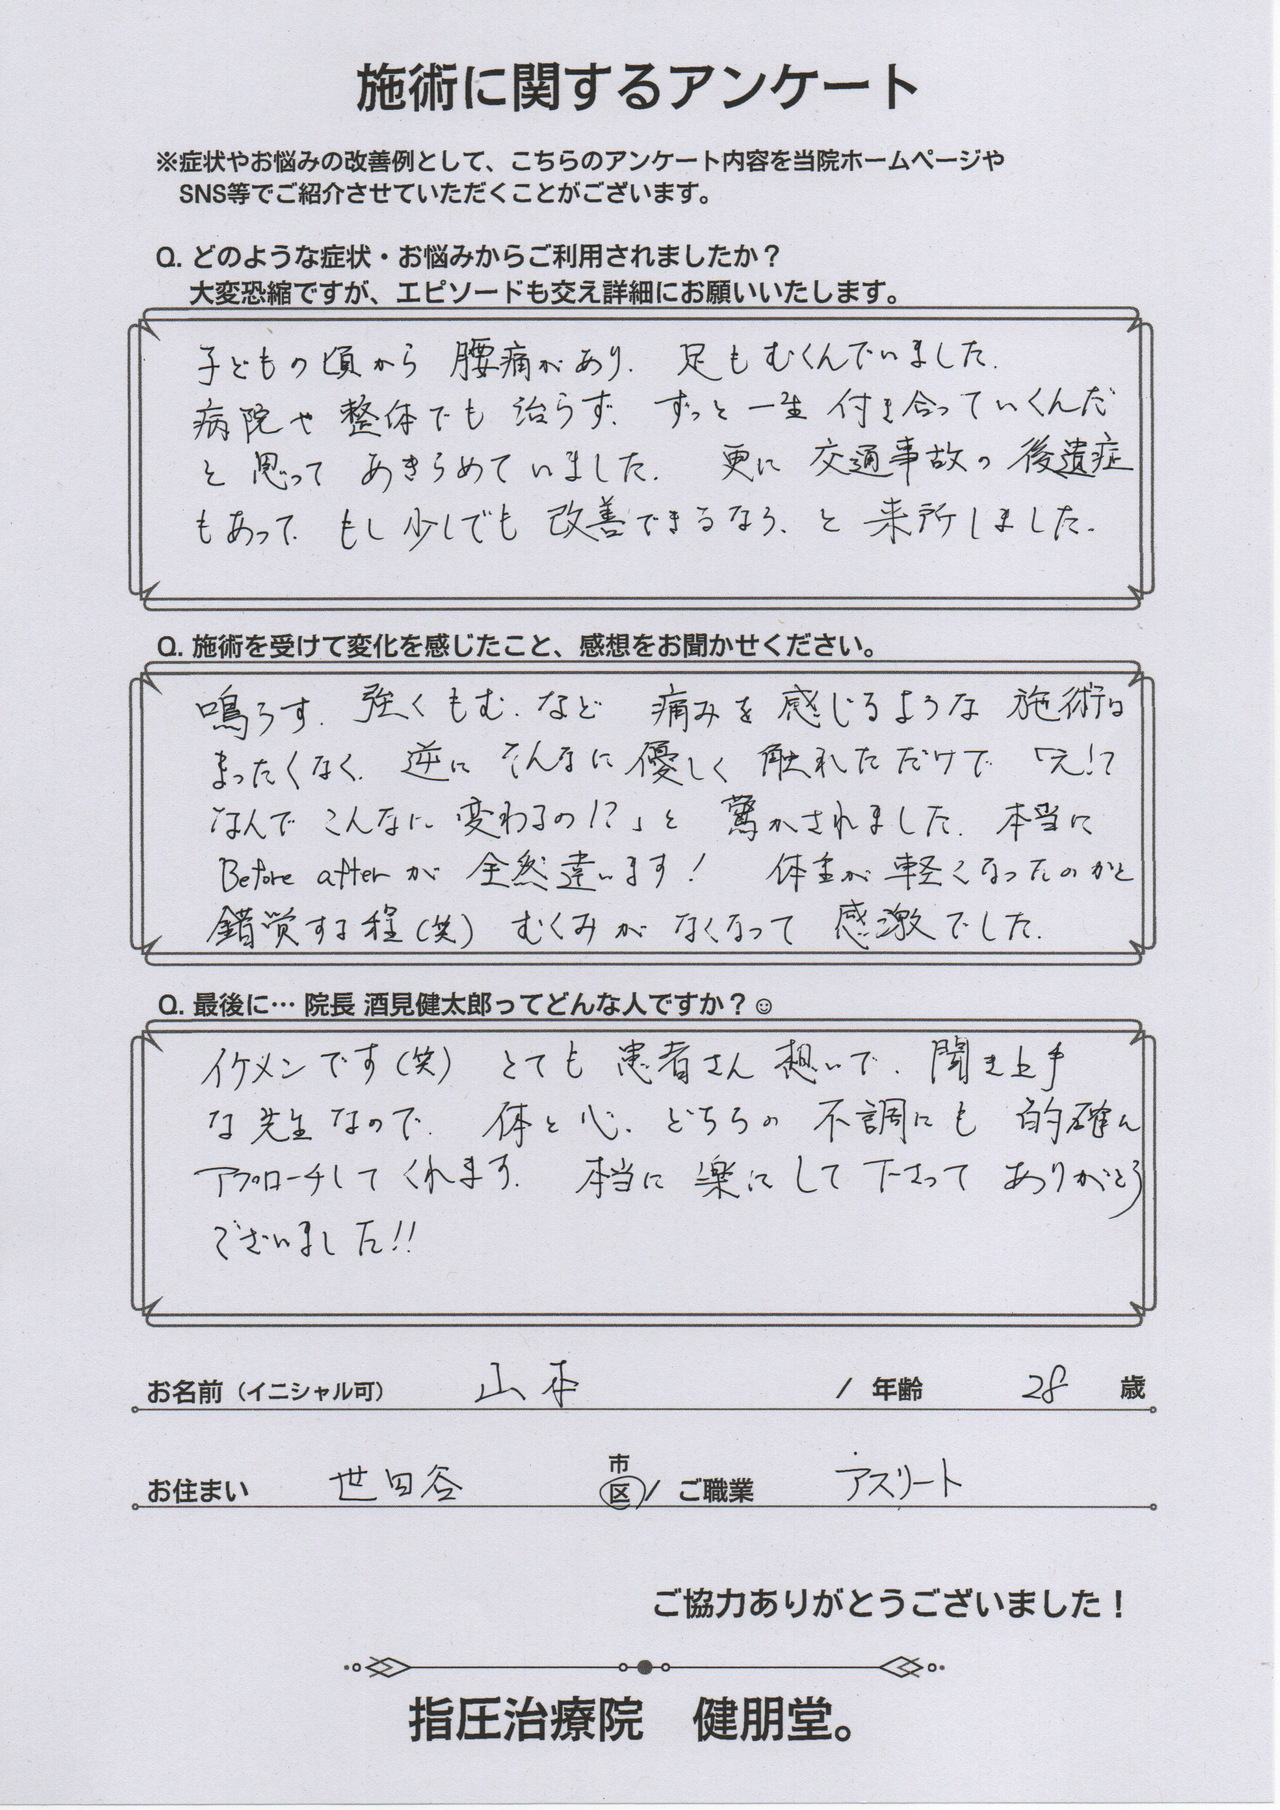 施術に関するアンケート
※症状やお悩みの改善例として、こちらのアンケート内容を当院ホームページや
SNS等でご紹介させていただくことがございます。
Q. どのような症状・お悩みからご利用されましたか？
大変恐縮ですが、エピソードも交え詳細にお願いいたします。
子どもの頃から 腰痛があり、足もむくんでいました。
病院や整体でも治らず、ずっと一生付き合っていくんだ
と思ってあきらめていました。更に交通事故の後遺症
もあって、もし少しでも改善できるなら、と来所しました。
Q. 施術を受けて変化を感じたこと、感想をお聞かせください。
鳴らす、強くもむ、など 痛みを感じるような施術は
まったくなく、逆に そんなに優しく触れただけで「え！？
なんでこんなに変わるの！？」と驚かされました。本当に
Before afterが全然違います！ 体重が軽くなったのかと
錯覚する程（笑）むくみがなくなって感激でした。
Q. 最後に… 院長 酒見健太郎ってどんな人ですか？☺
イケメンです（笑） とても患者さん想いで、聞き上手
な先生なので、体と心、どちらの不調にも的確に
アプローチしてくれます。本当に楽にして下さってありがとう
ございました！！
お名前（イニシャル可） 山本 / 年齢 28 歳
お住まい 世田谷 市 区 / ご職業 アスリート
ご協力ありがとうございました！
指圧治療院 健朋堂。